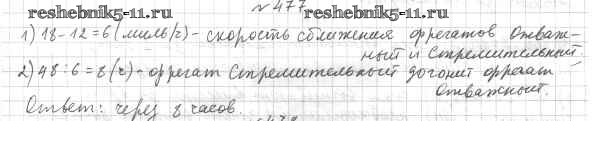 № 477
reshebnik5-11.ru reshebnik5-11.ru
1) 18-12=6 (миль/ч) - скорость сближения фрегатов Отваж-
ный и Стремительный.
2) 48:6=8 (ч) - фрегат Стремительный догонит фрегат
Отважный.
Ответ: через 8 часов.